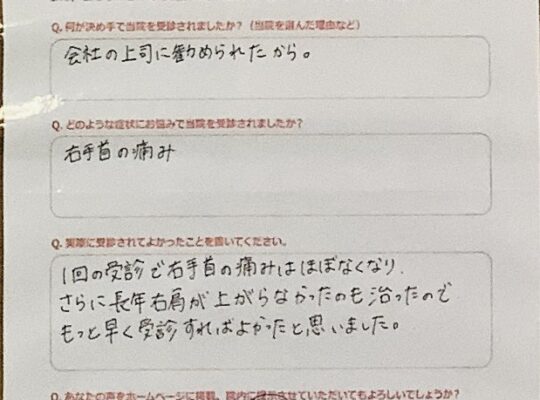 Q. 何が決め手で当院を受診されましたか？（当院を選んだ理由など）
会社の上司に勧められたから。
Q. どのような症状にお悩みで当院を受診されましたか？
右手首の痛み
Q. 実際に受診されてよかったことを書いてください。
1回の受診で右手首の痛みはほぼなくなり、
さらに長年右肩が上がらなかったのも治ったので
もっと早く受診すればよかったと思いました。
Q. あなたの声をホームページに掲載、院内に掲示させていただいてもよろしいでしょうか？